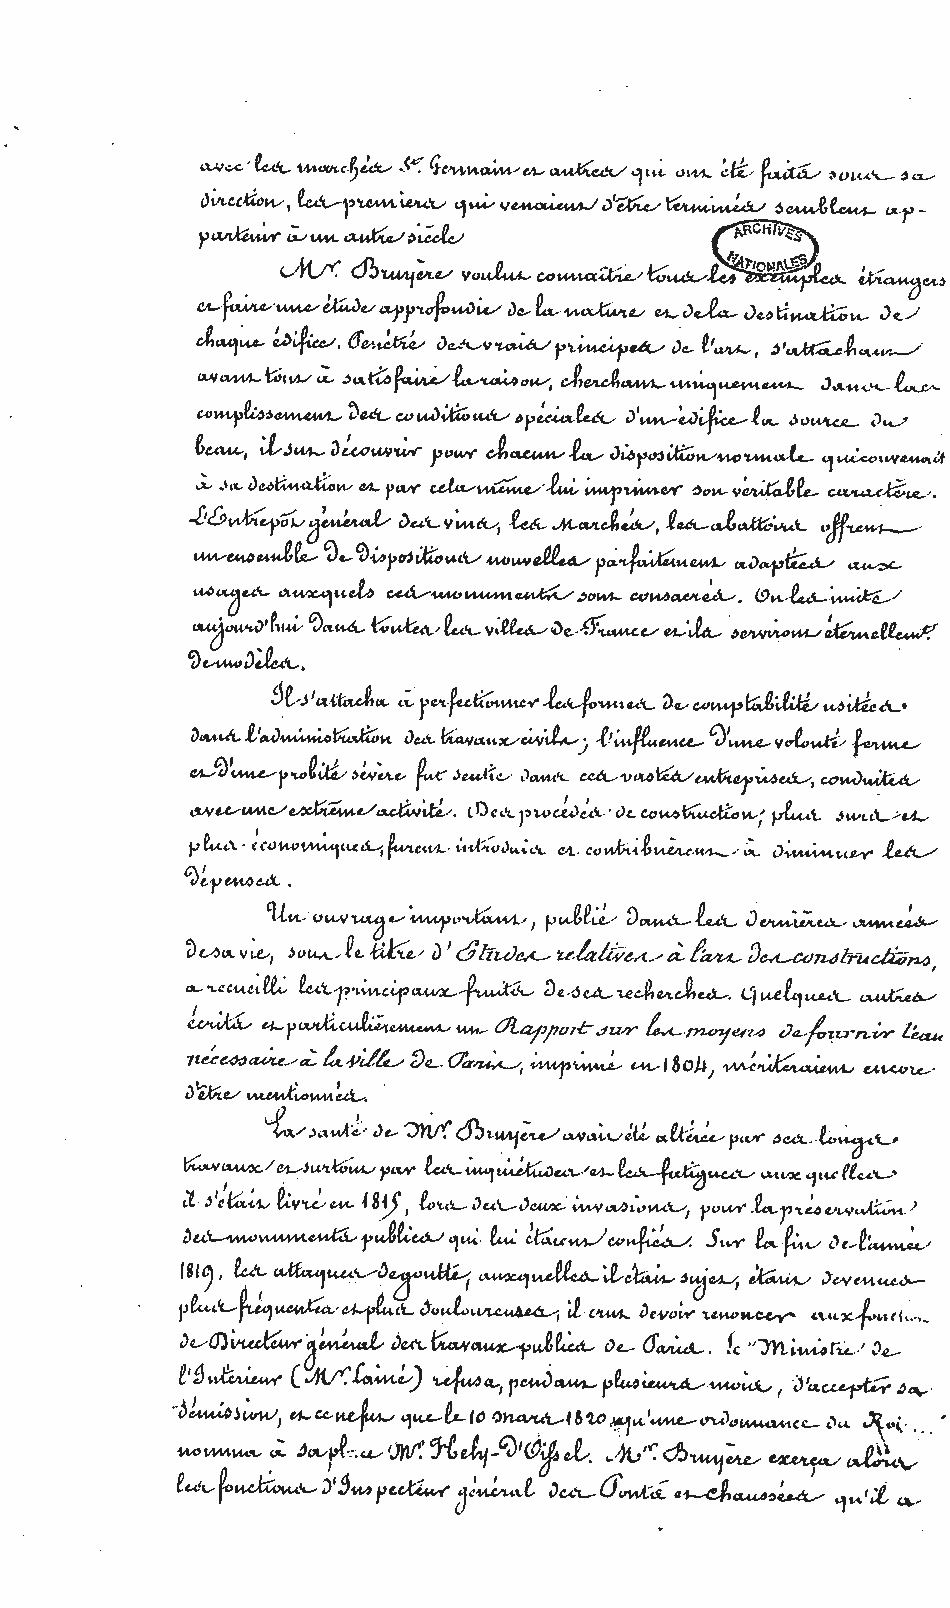 avec les marchés St. Germain et autres qui ont été faits sous sa
direction, les premiers qui venaient d'être terminés semblent ap-
partenir à un autre siècle
ARCHIVES NATIONALES
Mr. Bruyère voulut connaître tous les exemples étrangers
et faire une étude approfondie de la nature et de la destination de
chaque édifice. Pénétré des vrais principes de l'art, s'attachant
avant tout à satisfaire la raison, cherchant uniquement dans l'ac-
complissement des conditions spéciales d'un édifice la source du
beau, il sut découvrir pour chacun la disposition normale qui convenait
à sa destination et par cela même lui imprimer son véritable caractère.
L'Entrepôt général des vins, les Marchés, les abattoirs offrent
un ensemble de dispositions nouvelles parfaitement adaptées aux
usages auxquels ces monuments sont consacrés. On les imite
aujourd'hui dans toutes les villes de France et ils serviront éternellemt.
de modèles.
Il s'attacha à perfectionner les formes de comptabilité usitées
dans l'administration des travaux civils; l'influence d'une volonté ferme
et d'une probité sévère fut sentie dans ces vastes entreprises, conduites
avec une extrême activité. Des procédés de construction, plus surs et
plus économiques, furent introduits et contribuèrent à diminuer les
dépenses.
Un ouvrage important, publié dans les dernières années
de sa vie, sous le titre d'Etudes relatives à l'art des constructions,
a recueilli les principaux fruits de ses recherches. Quelques autres
écrits et particulièrement un Rapport sur les moyens de fournir l'eau
nécessaire à la ville de Paris, imprimé en 1804, mériteraient encore
d'être mentionnés.
La santé de Mr. Bruyère avait été altérée par ses longs
travaux et surtout par les inquiétudes et les fatigues aux quelles
il s'était livré en 1815, lors des deux invasions, pour la préservation
des monuments publics qui lui étaient confiés. Sur la fin de l'année
1819, les attaques de goutte, auxquelles il était sujet, étant devenues
plus fréquentes et plus douloureuses, il crut devoir renoncer aux fonctions
de Directeur général des travaux publics de Paris. le Ministre de
l'Intérieur (Mr. Lainé) refusa, pendant plusieurs mois, d'accepter sa
démission, et ce ne fut que le 10 mars 1820 qu'une ordonnance du Roi
nomma à sa place Mr. Hely-d'Oissel. Mr. Bruyère exerça alors
les fonctions d'Inspecteur général des Ponts et chaussées qu'il a